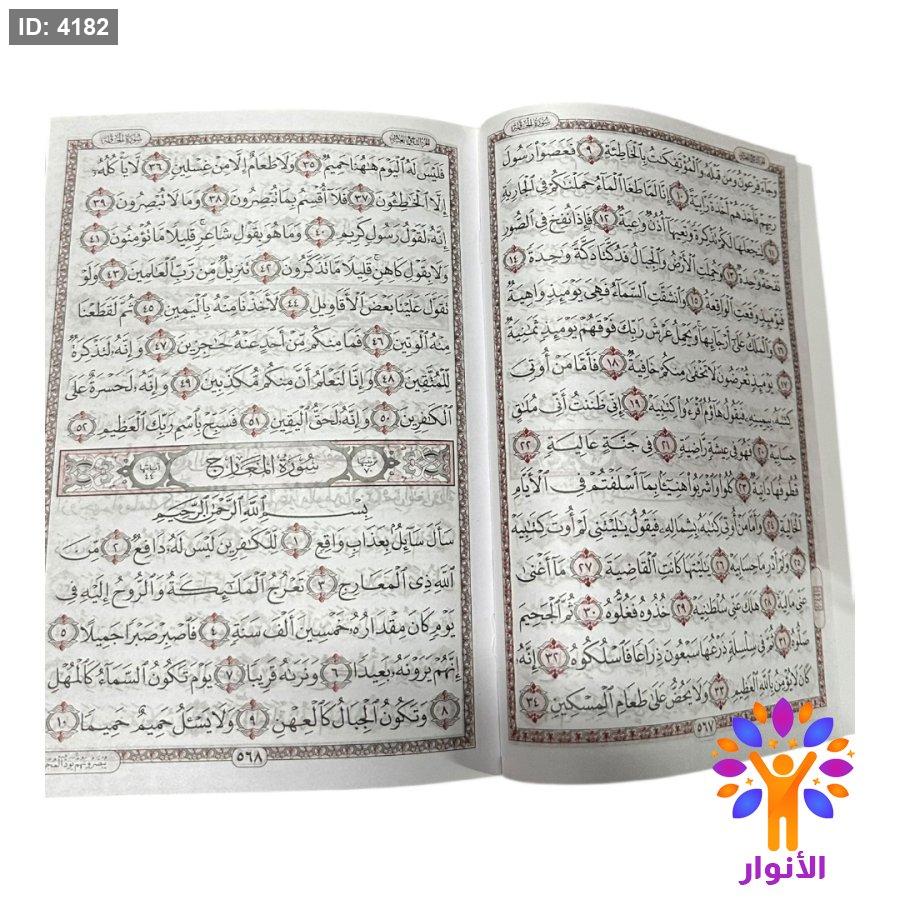 ID: 4182
سورة الحاقة
وجاء فرعون ومن قبله والمؤتفكت بالخاطئة ٩ فعصوا رسول
ربهم فأخذهم أخذة رابية ١٠ إنا لما طغا الماء حملنكم في الجارية
١١ لنجعلها لكم تذكرة وتعيها أذن وعية ١٢ فإذا نفخ في الصور
نفخة وحدة ١٣ وحملت الأرض والجبال فدكتا دكة وحدة ١٤
فيومئذ وقعت الواقعة ١٥ وانشقت السماء فهي يومئذ واهية
١٦ والملك على أرجائها ويحمل عرش ربك فوقهم يومئذ ثمنية
١٧ يومئذ تعرضون لا تخفى منكم خافية ١٨ فأما من أوتي
كتبه بيمينه فيقول هاؤم اقرءوا كتبيه ١٩ إني ظننت أني ملق
حسابيه ٢٠ فهو في عيشة راضية ٢١ في جنة عالية ٢٢
قطوفها دانية ٢٣ كلوا واشربوا هنيئا بما أسلفتم في الأيام
الخالية ٢٤ وأما من أوتي كتبه بشماله فيقول يليتني لم أوت كتبيه
٢٥ ولم أدر ما حسابيه ٢٦ يليتها كانت القاضية ٢٧ ما أغنى
عني ماليه ٢٨ هلك عني سلطنيه ٢٩ خذوه فغلوه ٣٠ ثم الجحيم
صلوه ٣١ ثم في سلسلة ذرعها سبعون ذراعا فاسلكوه ٣٢ إنه
كان لا يؤمن بالله العظيم ٣٣ ولا يحض على طعام المسكين ٣٤
٥٦٧
سورة الحاقة
فليس له اليوم ههنا حميم ٣٥ ولا طعام إلا من غسلين ٣٦ لا يأكله
إلا الخطئون ٣٧ فلا أقسم بما تبصرون ٣٨ وما لا تبصرون ٣٩
إنه لقول رسول كريم ٤٠ وما هو بقول شاعر قليلا ما تؤمنون ٤١
ولا بقول كاهن قليلا ما تذكرون ٤٢ تنزيل من رب العالمين ٤٣ ولو
تقول علينا بعض الأقاويل ٤٤ لأخذنا منه باليمين ٤٥ ثم لقطعنا
منه الوتين ٤٦ فما منكم من أحد عنه حجزين ٤٧ وإنه لتذكرة
للمتقين ٤٨ وإنا لنعلم أن منكم مكذبين ٤٩ وإنه لحسرة على
الكفرين ٥٠ وإنه لحق اليقين ٥١ فسبح باسم ربك العظيم ٥٢
سورة المعارج
بسم الله الرحمن الرحيم
سأل سائل بعذاب واقع ١ للكفرين ليس له دافع ٢ من
الله ذي المعارج ٣ تعرج الملئكة والروح إليه في
يوم كان مقداره خمسين ألف سنة ٤ فاصبر صبرا جميلا ٥
إنهم يرونه بعيدا ٦ ونرىه قريبا ٧ يوم تكون السماء كالمهل
٨ وتكون الجبال كالعهن ٩ ولا يسئل حميم حميما ١٠
٥٦٨
الأنوار